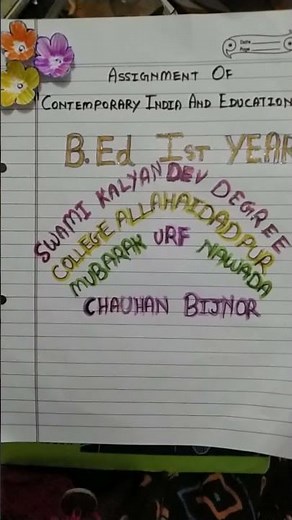 Date
Page
ASSIGNMENT OF
CONTEMPORARY INDIA AND EDUCATION
B.Ed Ist YEAR
SWAMI KALYAN DEV DEGREE
COLLEGE ALLAHAIDADPUR
MUBARAK URF NAWADA
CHAUHAN BIJNOR